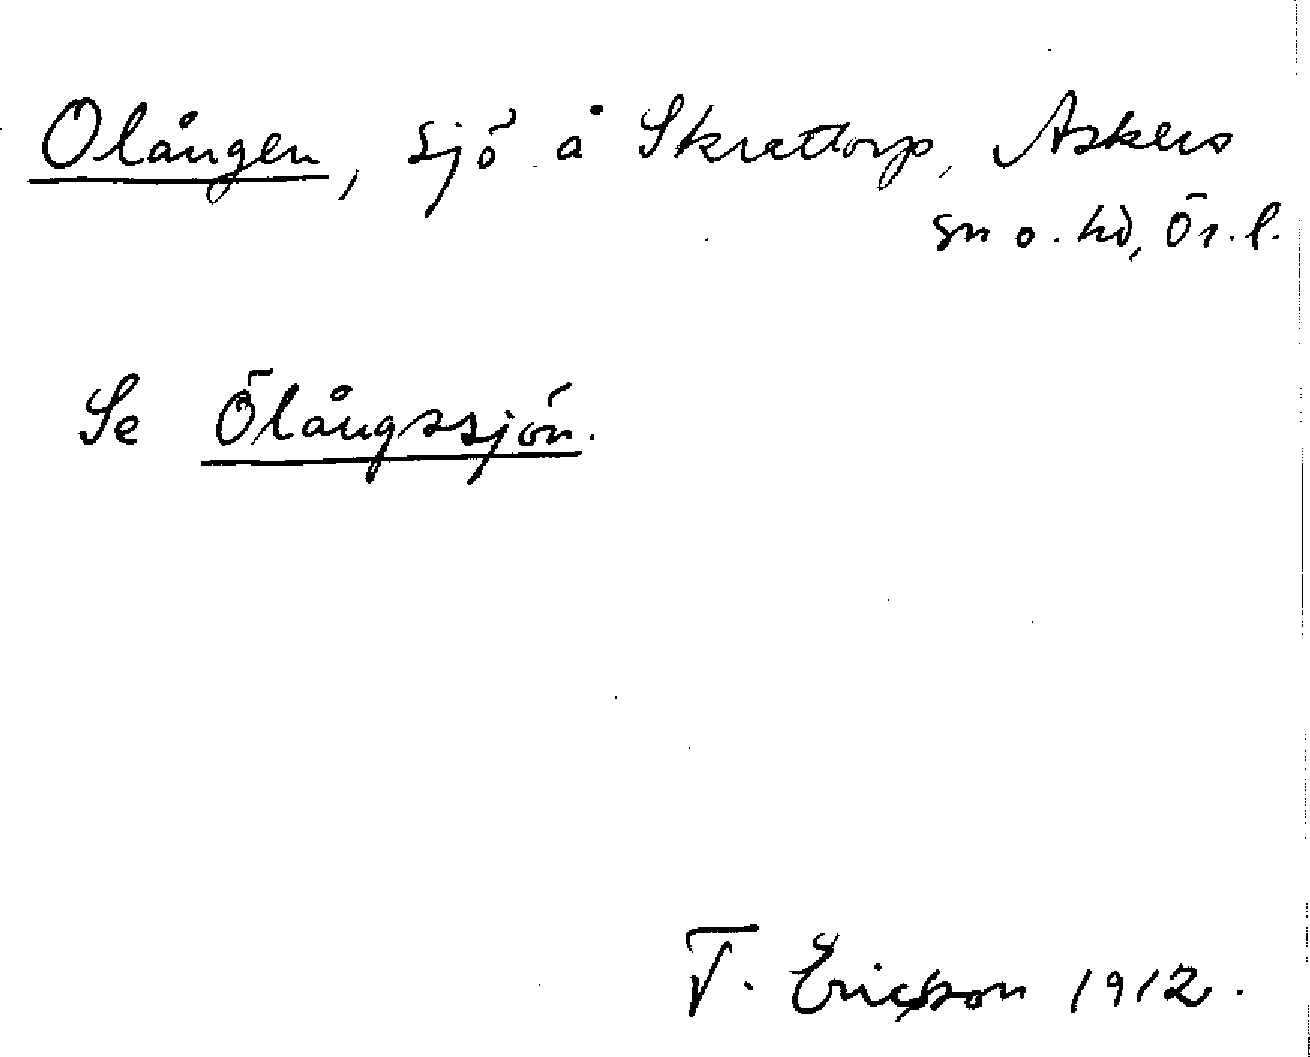 Olången, sjö å Skrattorp, Askers
sn o. hd, Ör. l.
Se Ölångssjön.
T. Ericsson 1912.